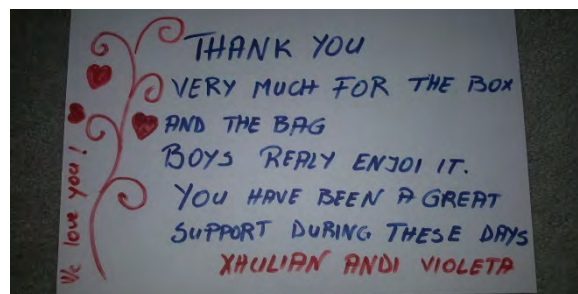 THANK YOU
VERY MUCH FOR THE BOX
AND THE BAG
BOYS REALY ENJOI IT.
YOU HAVE BEEN A GREAT
SUPPORT DURING THESE DAYS
XHULIAN ANDI VIOLETA
We love you!